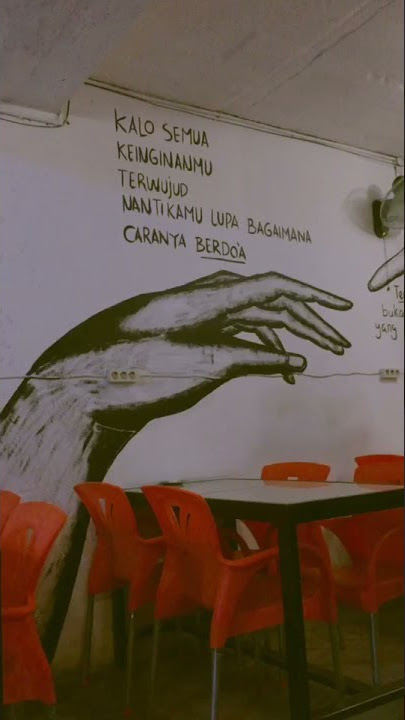 KALO SEMUA
KEINGINANMU
TERWUJUD
NANTI KAMU LUPA BAGAIMANA
CARANYA BERDO'A
buka
yang